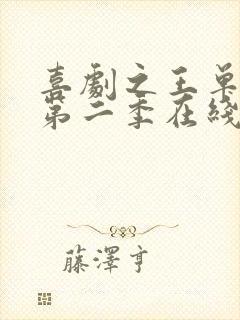 喜劇之王单
第二季在綫
藤澤亨